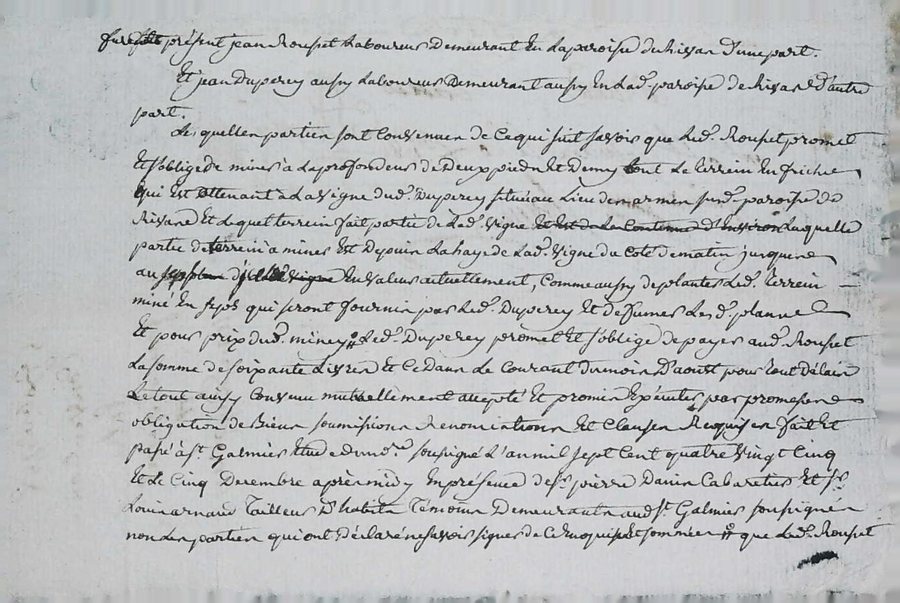 furent présent jean Rouset Laboureur Demeurant En Laparoisse de Rivas d'une part.
Et jean Duperey aussy Laboureur Demeurant aussy En Lad. paroisse de Rivas d'autre
part.
Lesquelles parties sont Convenues de Ce qui suit savoir que Led. Rouset promet
Et soblige de miner a Laprofondeur de Deux pieds Et Demy tout Le terrein En friche
qui Est attenant a La vigne dud. Duperey situé au Lieu de marmin susd. paroisse de
Rivas Et Lequel terrein fait partie de Lad. vigne Et Est de La Contenue d'Environ Laquelle
partie de terrein a miner Est Depuis La haye de Lad. vigne du Coté de matin jusques
au vigne En valeur actuellement, Comme aussy de planter Led. terrein
miné En qui seront fournis par Led. Duperey Et de fumer Lesd. plannes
Et pour prix dud. miney Led. Duperey promet Et soblige de payer aud. Rouset
La somme de soixante Livres Et Ce Dans Le Courant du mois D'aoust pour tout Délais
Le tout ainsy Convenu mutuellement accepté Et promis Exécuter par promesses
obligation de Biens soumissions Renonciations Et Clauses Requises fait Et
passé a St. Galmier Etude du nore. soussigné L'an mil sept Cent quatre vingt Cinq
Et Le Cinq Decembre après midy En présence de sr. pierre Danis Cabaretier Et sr.
Louis arnaud Tailleur D'habits Témoins Demeurants aud. St. Galmier soussignés
non Les parties qui ont Déclaré ne savoir signer de Ce Enquis Et sommées que Led. Rouset